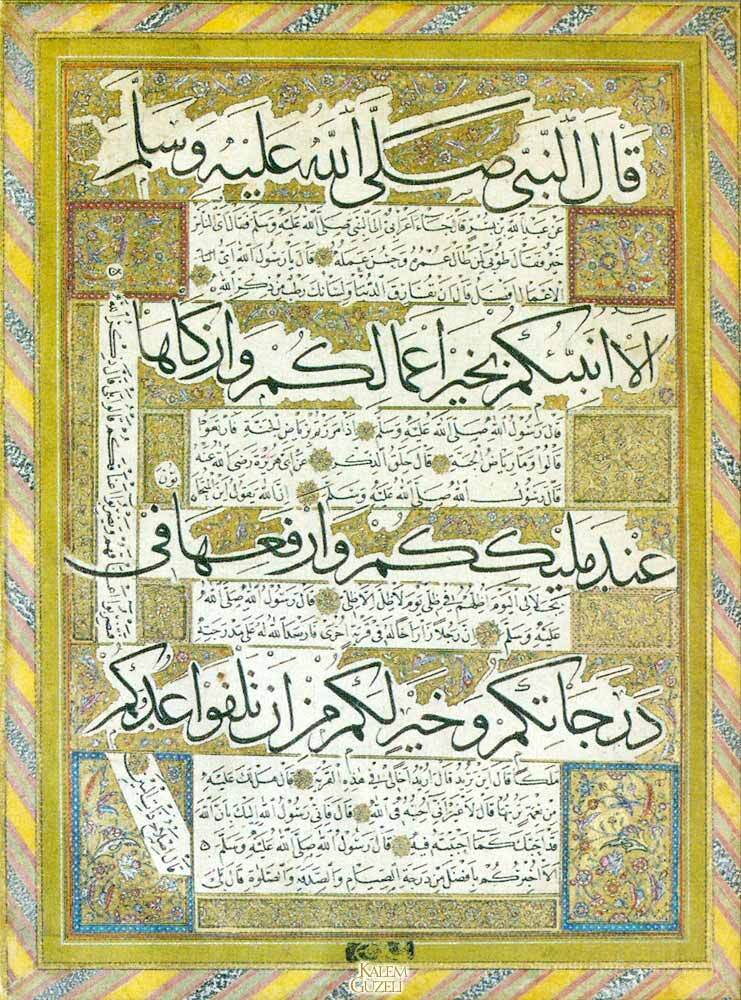 قَالَ النَّبِىُّ صَلَّى اللهُ عَلَيْهِ وَسَلَّمَ
عن عبد الله بن بسر قال جاء اعرابى الى النبى صلى الله عليه وسلم فقال اى الناس
خير فقال طوبى لمن طال عمره وحسن عمله قال يا رسول الله اى
الاعمال افضل قال ان تفارق الدنيا ولسانك رطب من ذكر الله
اَلاَ اُنَبِّئُكُمْ بِخَيْرِ اَعْمَالِكُمْ وَاَزْكَاهَا
قال رسول الله صلى الله عليه وسلم اذا مررتم برياض الجنة فارتعوا
قالوا وما رياض الجنة قال حلق الذكر عن ابى هريرة رضى الله عنه
قال رسول الله صلى الله عليه وسلم ان الله يقول اين المتحابون
عِنْدَ مَلِيكِكُمْ وَاَرْفَعِهَا فِى
بجلالى اليوم اظلهم فى ظلى يوم لا ظل الا ظلى قال رسول الله صلى الله
عليه وسلم ان رجلا زار اخا له فى قرية اخرى فارصد الله له على مدرجته
دَرَجَاتِكُمْ وَخَيْرٍ لَكُمْ مِنْ اَنْ تَلْقَوْا عَدُوَّكُمْ
ملكا قال اين تريد قال اريد اخا لى فى هذه القرية قال هل لك عليه
من نعمة تربها قال لا غير انى احببته فى الله قال فانى رسول الله اليك بان الله
قد احبك كما احببته فيه قال رسول الله صلى الله عليه وسلم
الا اخبركم بافضل من درجة الصيام والصدقة والصلوة قال
KALEM
GÜZELİ